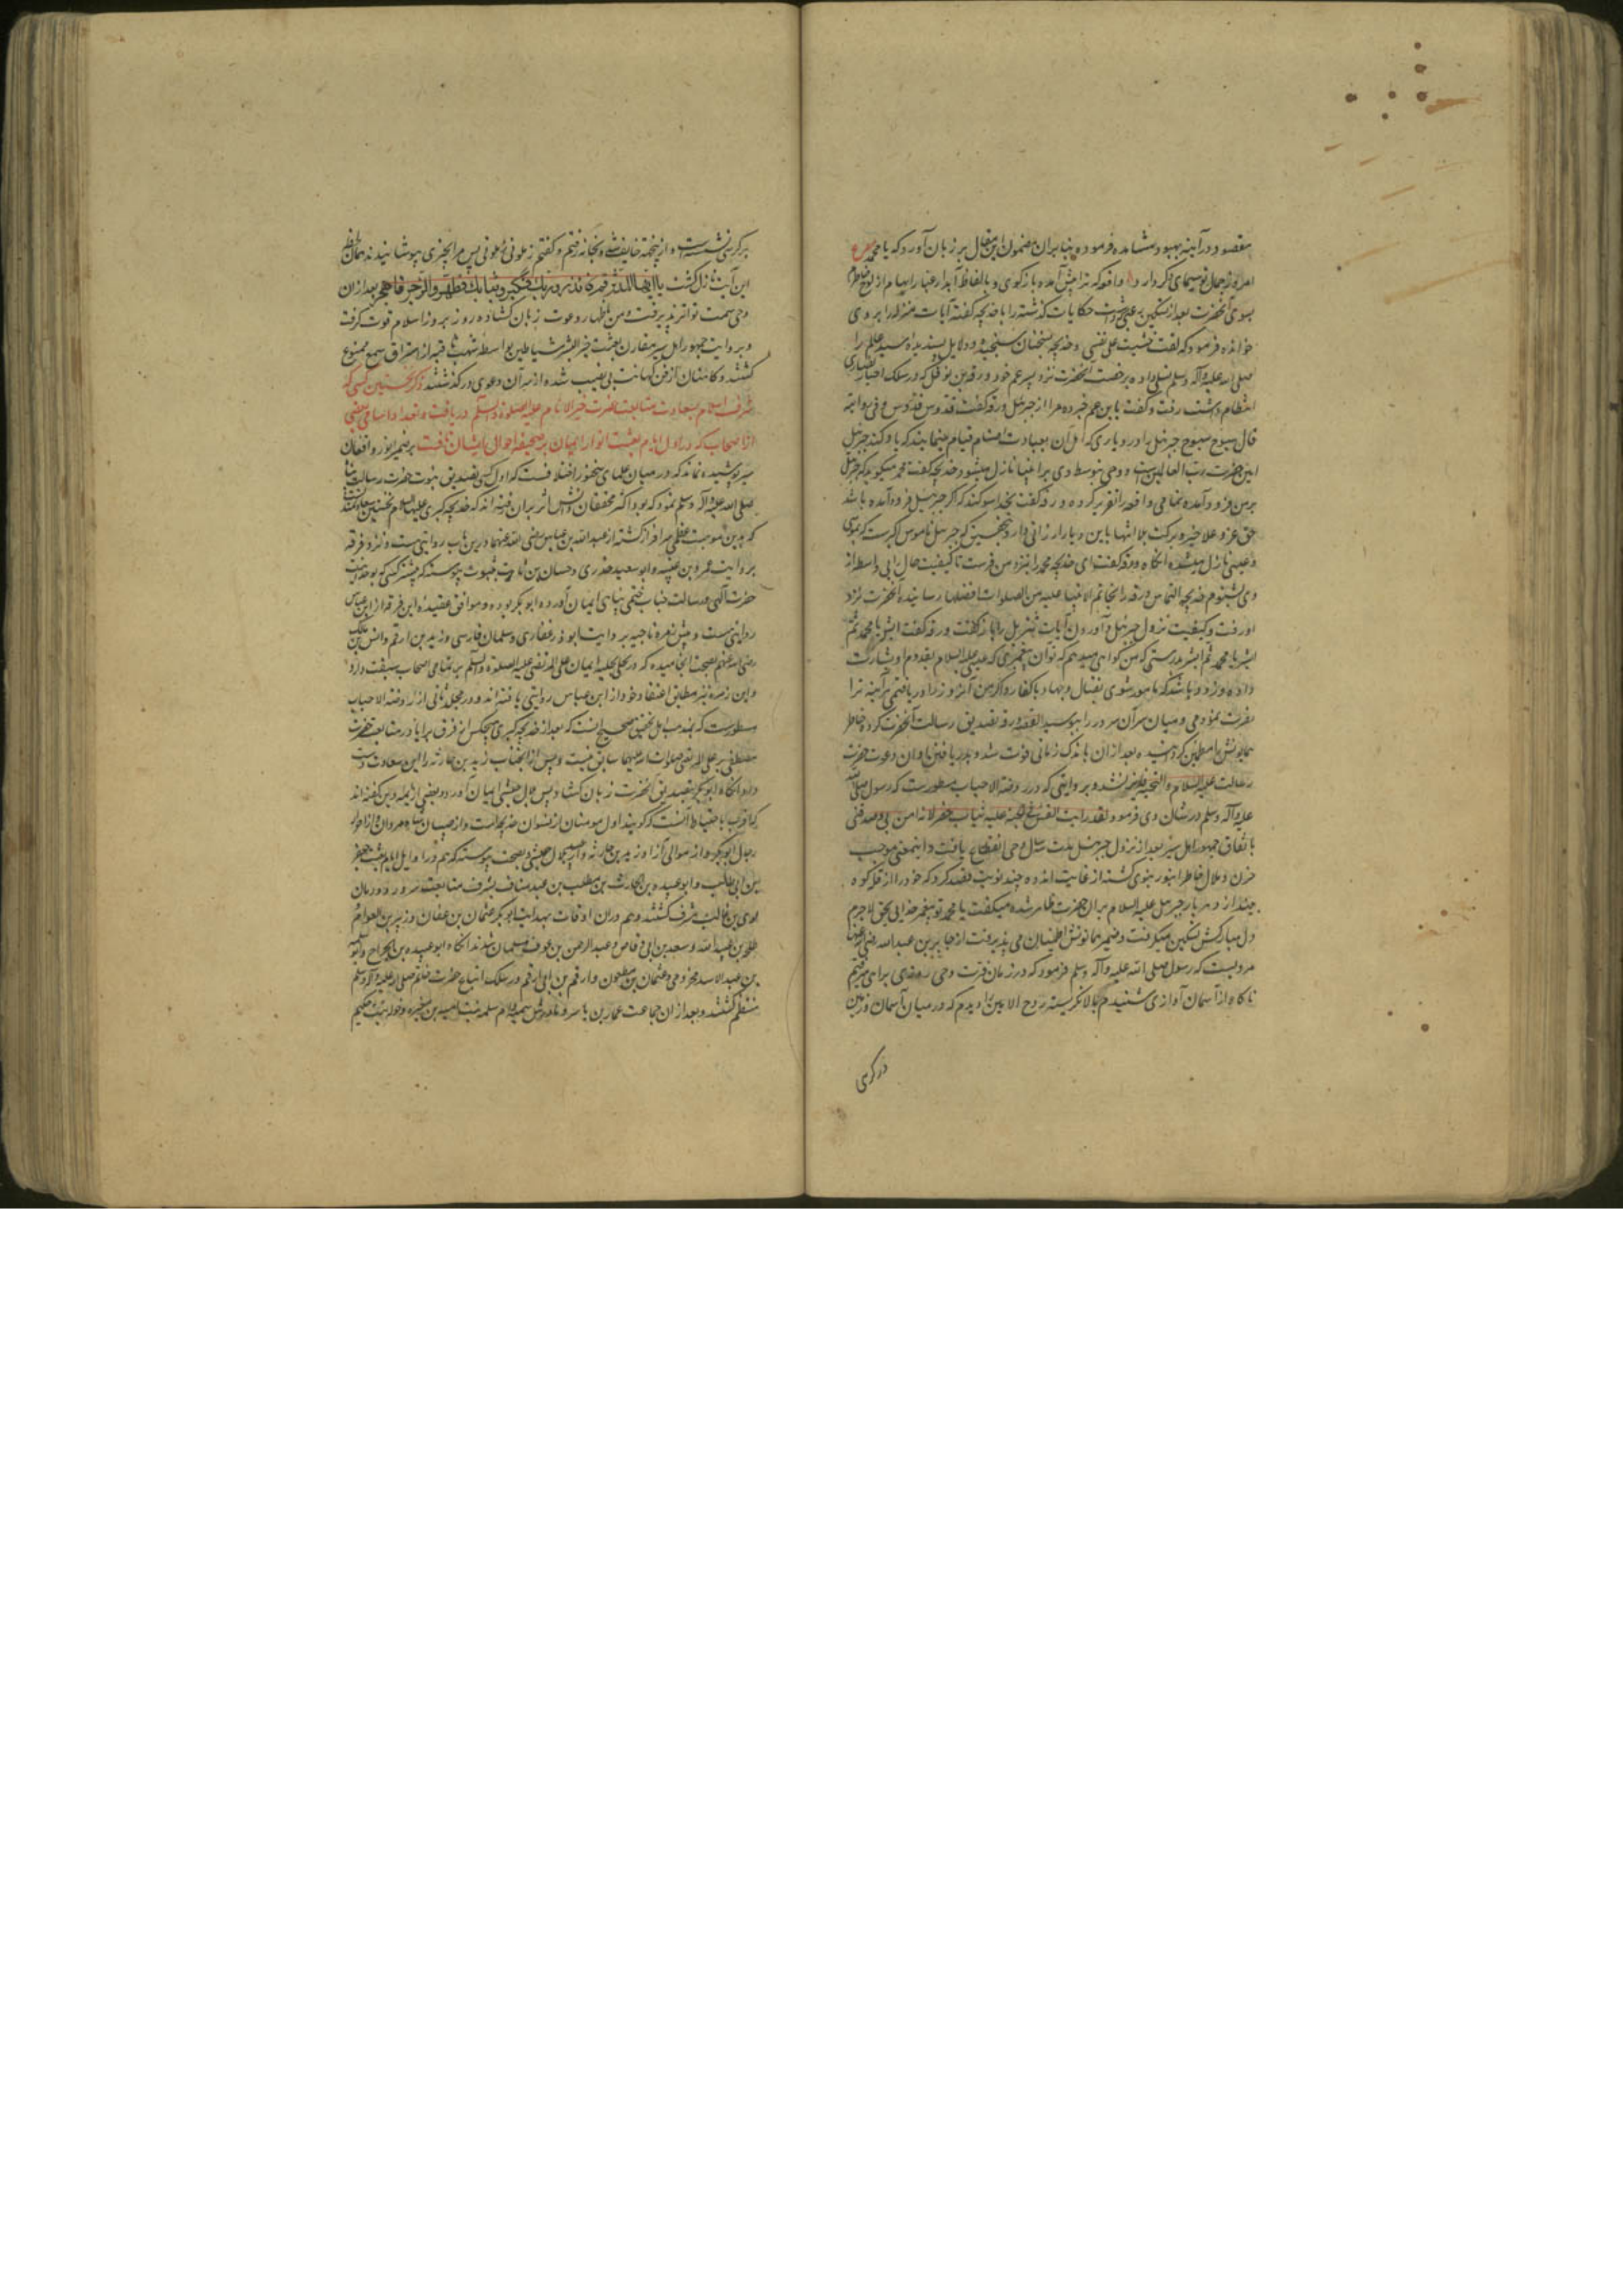 مقصود در آینه بهبود مشاهده فرموده بنابران مضمون این مقال بر زبان آورد که یا محمد ع
امروز جمال تو سیمای دگر دارد واقعه که ترا پیش آمده بازگوی و بالفاظ آبدار غبار ابهام از لوح خاطرم
بشوی آنحضرت بعد از تسکین حکایات گذشته را با خدیجه گفته آیات منزله را بر وی
خوانده فرمود که لقد خشیت علی نفسی و خدیجه بسخنان سنجیده و دلایل پسندیده سید عالم را
صلی الله علیه وآله وسلم تسلی داده برخصت آنحضرت نزد پسر عم خود ورقه بن نوفل که در سلک احبار نصاری
انتظام داشت رفت و گفت یا بن عم خبر ده مرا از جبرئیل ورقه گفت قدوس قدوس و فی روایة
قال سبوح سبوح جبرئیل را در دیاری که اهل آن بعبادت اصنام قیام مینمایند که یاد کند جبرئیل
امین حضرت رب العالمین است و وحی بتوسط وی بر انبیا نازل میشود خدیجه گفت محمد میگوید که جبرئیل
بر من فرود آمده و تمامی واقعه را تقریر کرده ورقه گفت بخدا سوگند که اگر جبرئیل فرود آمده باشد
حق عز و علا خیر و برکت بلا انتها باین دیار ارزانی دارد جبرئیل ناموس اکبر است که بموسی
و عیسی نازل میشده آنگاه ورقه گفت ای خدیجه محمد را نزد من فرست تا کیفیت حال را بی واسطه از
وی بشنوم خدیجه التماس ورقه را بخاتم الانبیا علیه من الصلوات افضلها رسانید آنحضرت نزد
او رفت و کیفیت نزول جبرئیل و آوردن آیات تنزیل را باز گفت ورقه گفت ابشر یا محمد ثم
ابشر یا محمد ثم ابشر بدرستی که من گواهی میدهم که تو آن پیغمبری که عیسی علیه السلام بقدوم او بشارت
داده و زود باشد که مامور شوی بقتال و جهاد با کفار و اگر من آنروز را دریافتمی هر آینه ترا
نصرت نمودمی و میان سر آن سرور را ببوسید القصه ورقه تصدیق رسالت آنحضرت کرده خاطر
همایونش را مطمئن گردانید و بعد از آن باندک زمانی فوت شد و بدریافتن اوان دعوت حضرت
رسالت علیه السلام والتحیه فایز نشد و بروایتی که در روضة الاحباب مسطورست که رسول صلی الله
علیه وآله وسلم در شان وی فرمود لقد رایت القس فی الجنة علیه ثیاب خضر لانه آمن بی وصدقنی
باتفاق جمهور اهل سیر بعد از نزول جبرئیل مدت سه سال وحی انقطاع یافت و اینمعنی موجب
حزن و ملال خاطر انور نبوی گشته از غایت اندوه چند نوبت قصد کرد که خود را از قله کوه
بیندازد و هر بار جبرئیل علیه السلام بر آن حضرت ظاهر شده میگفت یا محمد تو پیغمبر خدایی بحق لاجرم
دل مبارکش تسکین میگرفت و ضمیر همایونش اطمینان می پذیرفت از جابر بن عبدالله رضی الله عنهما
مرویست که رسول صلی الله علیه وآله وسلم فرمود که در زمان فترت وحی روزی براهی میرفتم
ناگاه از آسمان آوازی شنیدم بالا نگریستم روح الامین را دیدم که در میان آسمان و زمین
در کرسی
بر کرسی نشسته است و از هیبت خایف گشته بخانه رفتم و گفتم زملونی زملونی پس مرا بچیزی بپوشانیدند همان لحظه
این آیت نازل گشت یا ایها المدثر قم فانذر وربک فکبر وثیابک فطهر والرجز فاهجر بعد از ان
وحی سمت تواتر پذیرفت و من باظهار دعوت زبان گشاده روز بروز اسلام قوت گرفت
و بروایت جمهور اهل سیر مقارن بعثت خیر البشر شیاطین بواسطه شهب ثاقبه از استراق سمع ممنوع
گشتند و کاهنان از فن کهانت بی نصیب شده از سر آن دعوی در گذشتند ذکر نخستین کسی که
شرف اسلام بسعادت متابعت حضرت خیر الانام علیه الصلوة والسلام دریافت و تعداد اسامی بعضی
از اصحاب که در اول ایام بعثت انوار ایمان بر صحیفه احوال ایشان تافت بر ضمیر انور واقفان
سیر پوشیده نماند که در میان علمای سخنور اختلافست که اول کسی تصدیق نبوت حضرت رسالت پناه
صلی الله علیه وآله وسلم نمود که بود اکثر محققان دانش اثر بر آن رفته اند که خدیجه کبری علیها السلام نخستین سعادتمند
که بدین موهبت عظمی سرافراز گشته از عبد الله بن عباس رضی الله عنهما درین باب روایتی هست و نزد فرقه
بروایت عمرو بن عنبسه و ابو سعید خدری و حسان بن ثابت بثبوت پیوسته که پیشتر کسی که بوحدانیت
حضرت الهی و رسالت جناب ختمی پناهی ایمان آورده ابوبکر بوده و موافق عقیده این فرقه از ابن عباس
روایتی هست و پیش زمره ناجیه بروایت ابوذر غفاری و سلمان فارسی و زید بن ارقم و انس بن مالک
رضی الله عنهم بصحت انجامیده که در تحلی بحلیه ایمان علی المرتضی علیه الصلوة والسلام بر تمامی اصحاب سبقت دارد
و این زمره نیز مطابق اعتقاد خود از ابن عباس روایتی یافته اند و در مجلد ثانی از روضة الاحباب
مسطورست که بمذهب اهل تحقیق صحیح آنست که بعد از خدیجه کبری هیچکس از فرق برایا در متابعت حضرت
مصطفی بر علی المرتضی صلوات الله علیهما سابق نیست و پس از آنجناب زید بن حارثه را این سعادت دست
داد و آنگاه ابوبکر بتصدیق آنحضرت زبان گشاد پس بلال حبشی ایمان آورد و بعضی از ائمه دین گفته اند
که اقرب باحتیاط آنست که گویند اول مومنان از نسوان خدیجه است و از صبیان شاه مردان و از احرار
رجال ابوبکر و از موالی آزاد زید بن حارثه و از عبید بلال حبشی و بصحت پیوسته که هم در اوایل ایام بعثت جعفر
بن ابی طالب و ابو عبیده بن الحارث بن مطلب بن عبد مناف بشرف متابعت سرور دودمان
لوی بن غالب مشرف گشتند و هم در ان اوقات بهدایت ابوبکر عثمان بن عفان و زبیر بن العوام
طلحه بن عبید الله و سعد بن ابی وقاص و عبد الرحمن بن عوف مسلمان شدند آنگاه ابو عبیده بن الجراح و ابو سلمه
بن عبد الاسد مخزومی و عثمان بن مظعون و ارقم بن ابی ارقم در سلک اتباع حضرت خاتم صلی الله علیه وآله وسلم
منتظم گشتند و بعد از ان جماعت عمار بن یاسر و مادرش سمیه